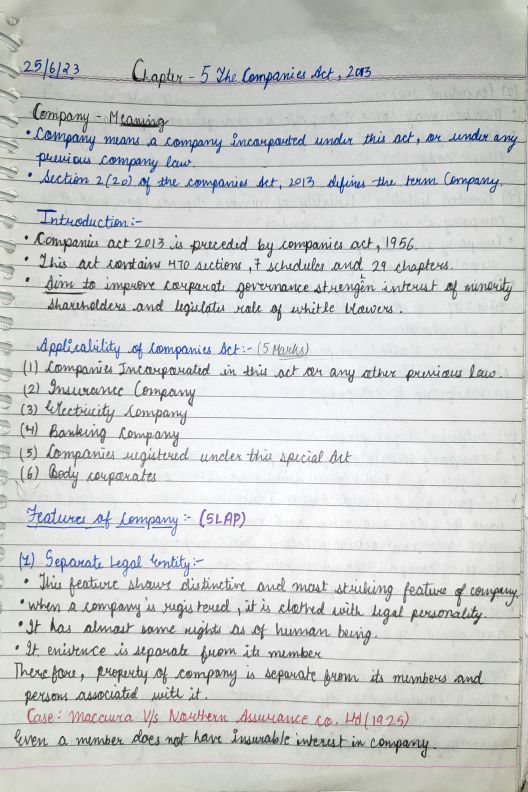 25/6/23
Chapter - 5 The Companies Act, 2013
Company - Meaning
• Company means a company incorporated under this act, or under any
previous company law.
• Section 2(20) of the companies Act, 2013 defines the term Company.
Introduction:-
• Companies act 2013 is preceded by companies act, 1956.
• This act contains 470 sections, 7 schedules and 29 chapters.
• Aim to improve corporate governance strengin interest of minority
shareholders and legislates role of whitle blowers.
Applicability of Companies Act:- (5 Marks)
(1) Companies Incorporated in this act or any other previous law.
(2) Insurance Company
(3) Electricity Company
(4) Banking Company
(5) Companies registered under this special Act
(6) Body corporates
Features of Company:- (SLAP)
(1) Separate Legal Entity:-
• This feature shows distinctive and most striking feature of company
• when a company is registered, it is clothed with legal personality.
• It has almost same rights as of human being.
• It existence is separate from its member
Therefore, property of company is separate from its members and
persons associated with it.
Case: Maccura V/s Northern Assurance co. Ltd (1925)
Even a member does not have insurable interest in company.